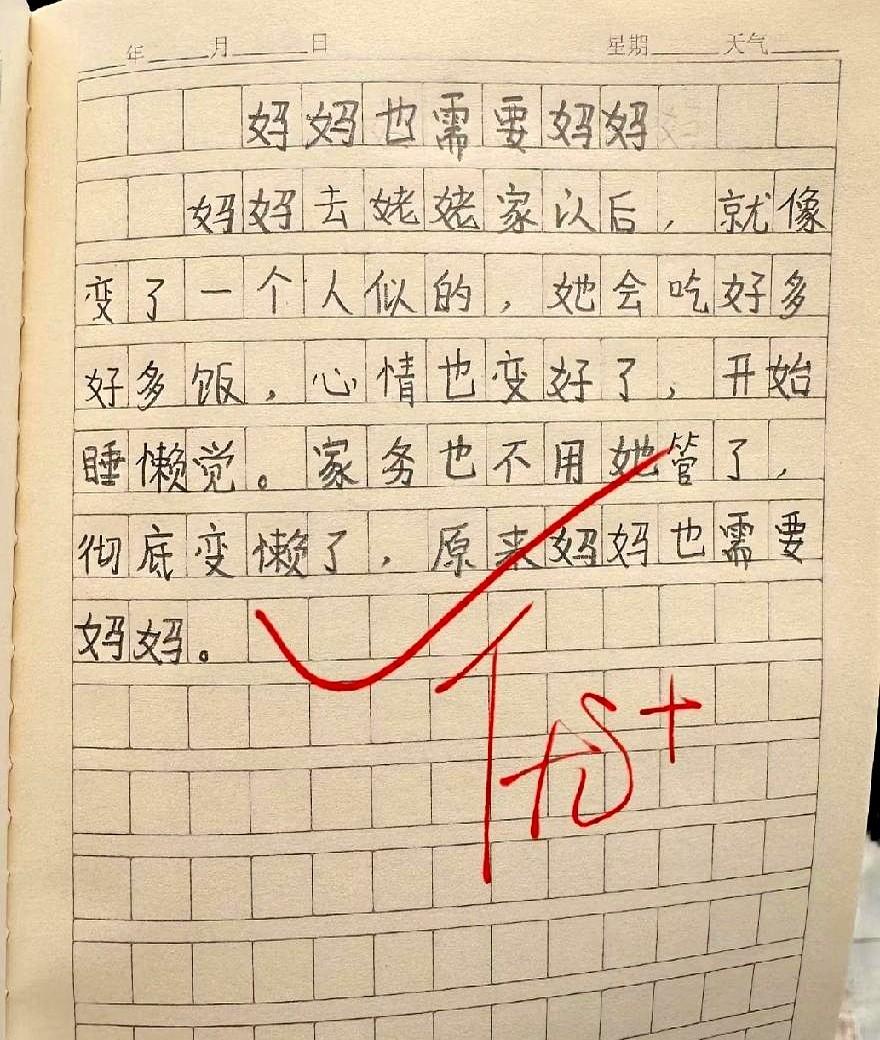 年 月 日 星期 天气
妈妈也需要妈妈
妈妈去姥姥家以后，就像
变了一个人似的，她会吃好多
好多饭，心情也变好了，开始
睡懒觉。家务也不用她管了，
彻底变懒了，原来妈妈也需要
妈妈。
优+